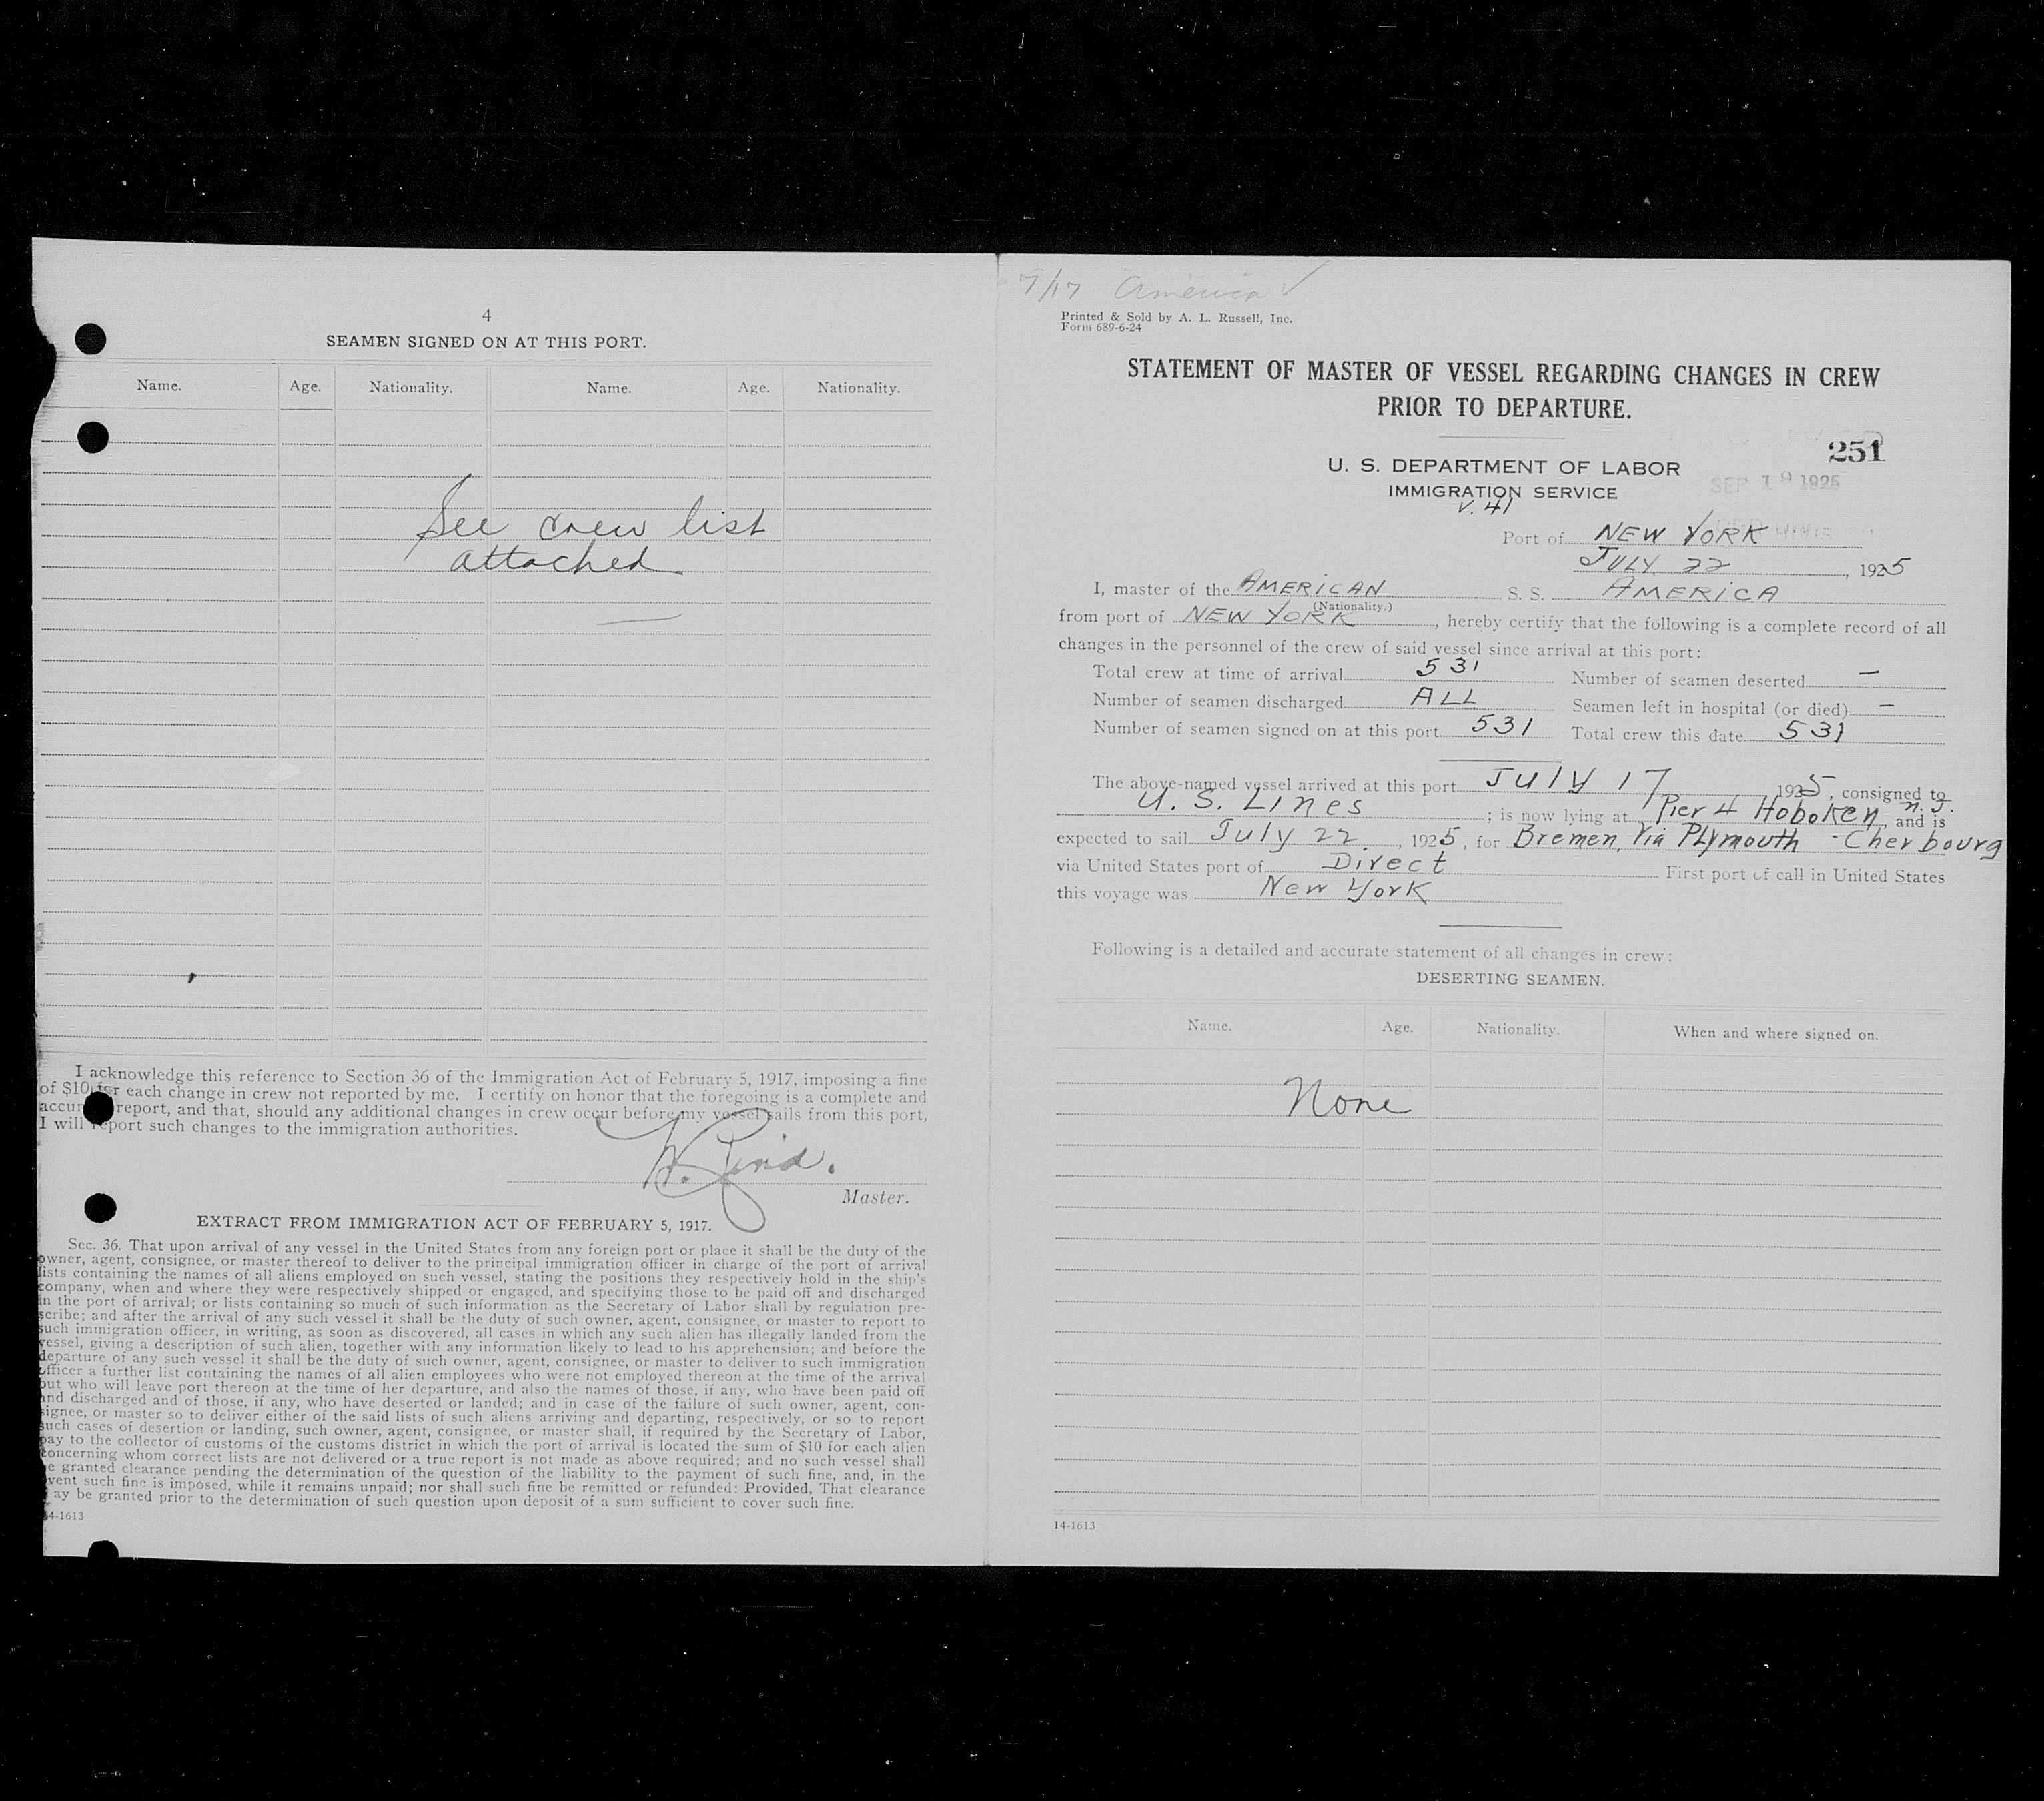 4
SEAMEN SIGNED ON AT THIS PORT.
Name. Age. Nationality. Name. Age. Nationality.
See crew list
attached
I acknowledge this reference to Section 36 of the Immigration Act of February 5, 1917, imposing a fine
of $10 for each change in crew not reported by me. I certify on honor that the foregoing is a complete and
accur report, and that, should any additional changes in crew occur before my vessel sails from this port,
I will report such changes to the immigration authorities.
Master.
EXTRACT FROM IMMIGRATION ACT OF FEBRUARY 5, 1917.
Sec. 36. That upon arrival of any vessel in the United States from any foreign port or place it shall be the duty of the
owner, agent, consignee, or master thereof to deliver to the principal immigration officer in charge of the port of arrival
lists containing the names of all aliens employed on such vessel, stating the positions they respectively hold in the ship's
company, when and where they were respectively shipped or engaged, and specifying those to be paid off and discharged
in the port of arrival; or lists containing so much of such information as the Secretary of Labor shall by regulation pre-
scribe; and after the arrival of any such vessel it shall be the duty of such owner, agent, consignee, or master to report to
such immigration officer, in writing, as soon as discovered, all cases in which any such alien has illegally landed from the
vessel, giving a description of such alien, together with any information likely to lead to his apprehension; and before the
departure of any such vessel it shall be the duty of such owner, agent, consignee, or master to deliver to such immigration
officer a further list containing the names of all alien employees who were not employed thereon at the time of the arrival
but who will leave port thereon at the time of her departure, and also the names of those, if any, who have been paid off
and discharged and of those, if any, who have deserted or landed; and in case of the failure of such owner, agent, con-
signee, or master so to deliver either of the said lists of such aliens arriving and departing, respectively, or so to report
such cases of desertion or landing, such owner, agent, consignee, or master shall, if required by the Secretary of Labor,
pay to the collector of customs of the customs district in which the port of arrival is located the sum of $10 for each alien
concerning whom correct lists are not delivered or a true report is not made as above required; and no such vessel shall
be granted clearance pending the determination of the question of the liability to the payment of such fine, and, in the
event such fine is imposed, while it remains unpaid; nor shall such fine be remitted or refunded: Provided, That clearance
may be granted prior to the determination of such question upon deposit of a sum sufficient to cover such fine.
14-1613
7/17 America
Printed & Sold by A. L. Russell, Inc.
Form 689-6-24
STATEMENT OF MASTER OF VESSEL REGARDING CHANGES IN CREW
PRIOR TO DEPARTURE.
251
U. S. DEPARTMENT OF LABOR
SEP 19 1925
IMMIGRATION SERVICE
V. 41
Port of NEW YORK
JULY 22, 1925
I, master of the AMERICAN S. S. AMERICA
(Nationality.)
from port of NEW YORK, hereby certify that the following is a complete record of all
changes in the personnel of the crew of said vessel since arrival at this port:
Total crew at time of arrival 531 Number of seamen deserted —
Number of seamen discharged ALL Seamen left in hospital (or died) —
Number of seamen signed on at this port 531 Total crew this date 531
The above-named vessel arrived at this port JULY 17 1925, consigned to
U. S. LINES ; is now lying at Pier 4 Hoboken N. J. and is
expected to sail July 22, 1925, for Bremen, Via Plymouth - Cherbourg
via United States port of Direct First port of call in United States
this voyage was New York
Following is a detailed and accurate statement of all changes in crew:
DESERTING SEAMEN.
Name. Age. Nationality. When and where signed on.
None
14-1613